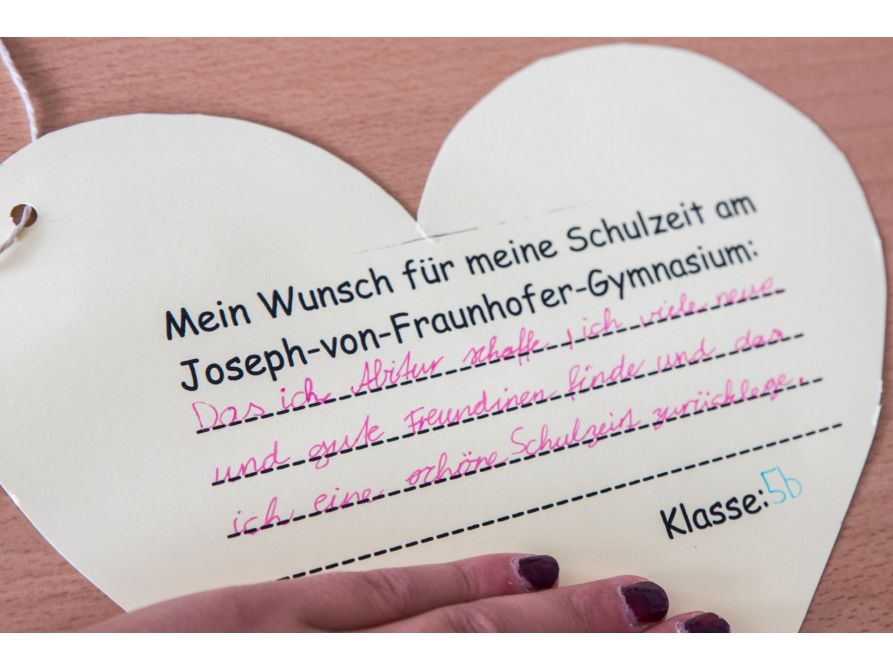 Mein Wunsch für meine Schulzeit am
Joseph-von-Fraunhofer-Gymnasium:
Das ich Abitur schaffe, ich viele neue
und gute Freundinen finde und das
ich eine schöne Schulzeit zurücklege.
Klasse: 5b